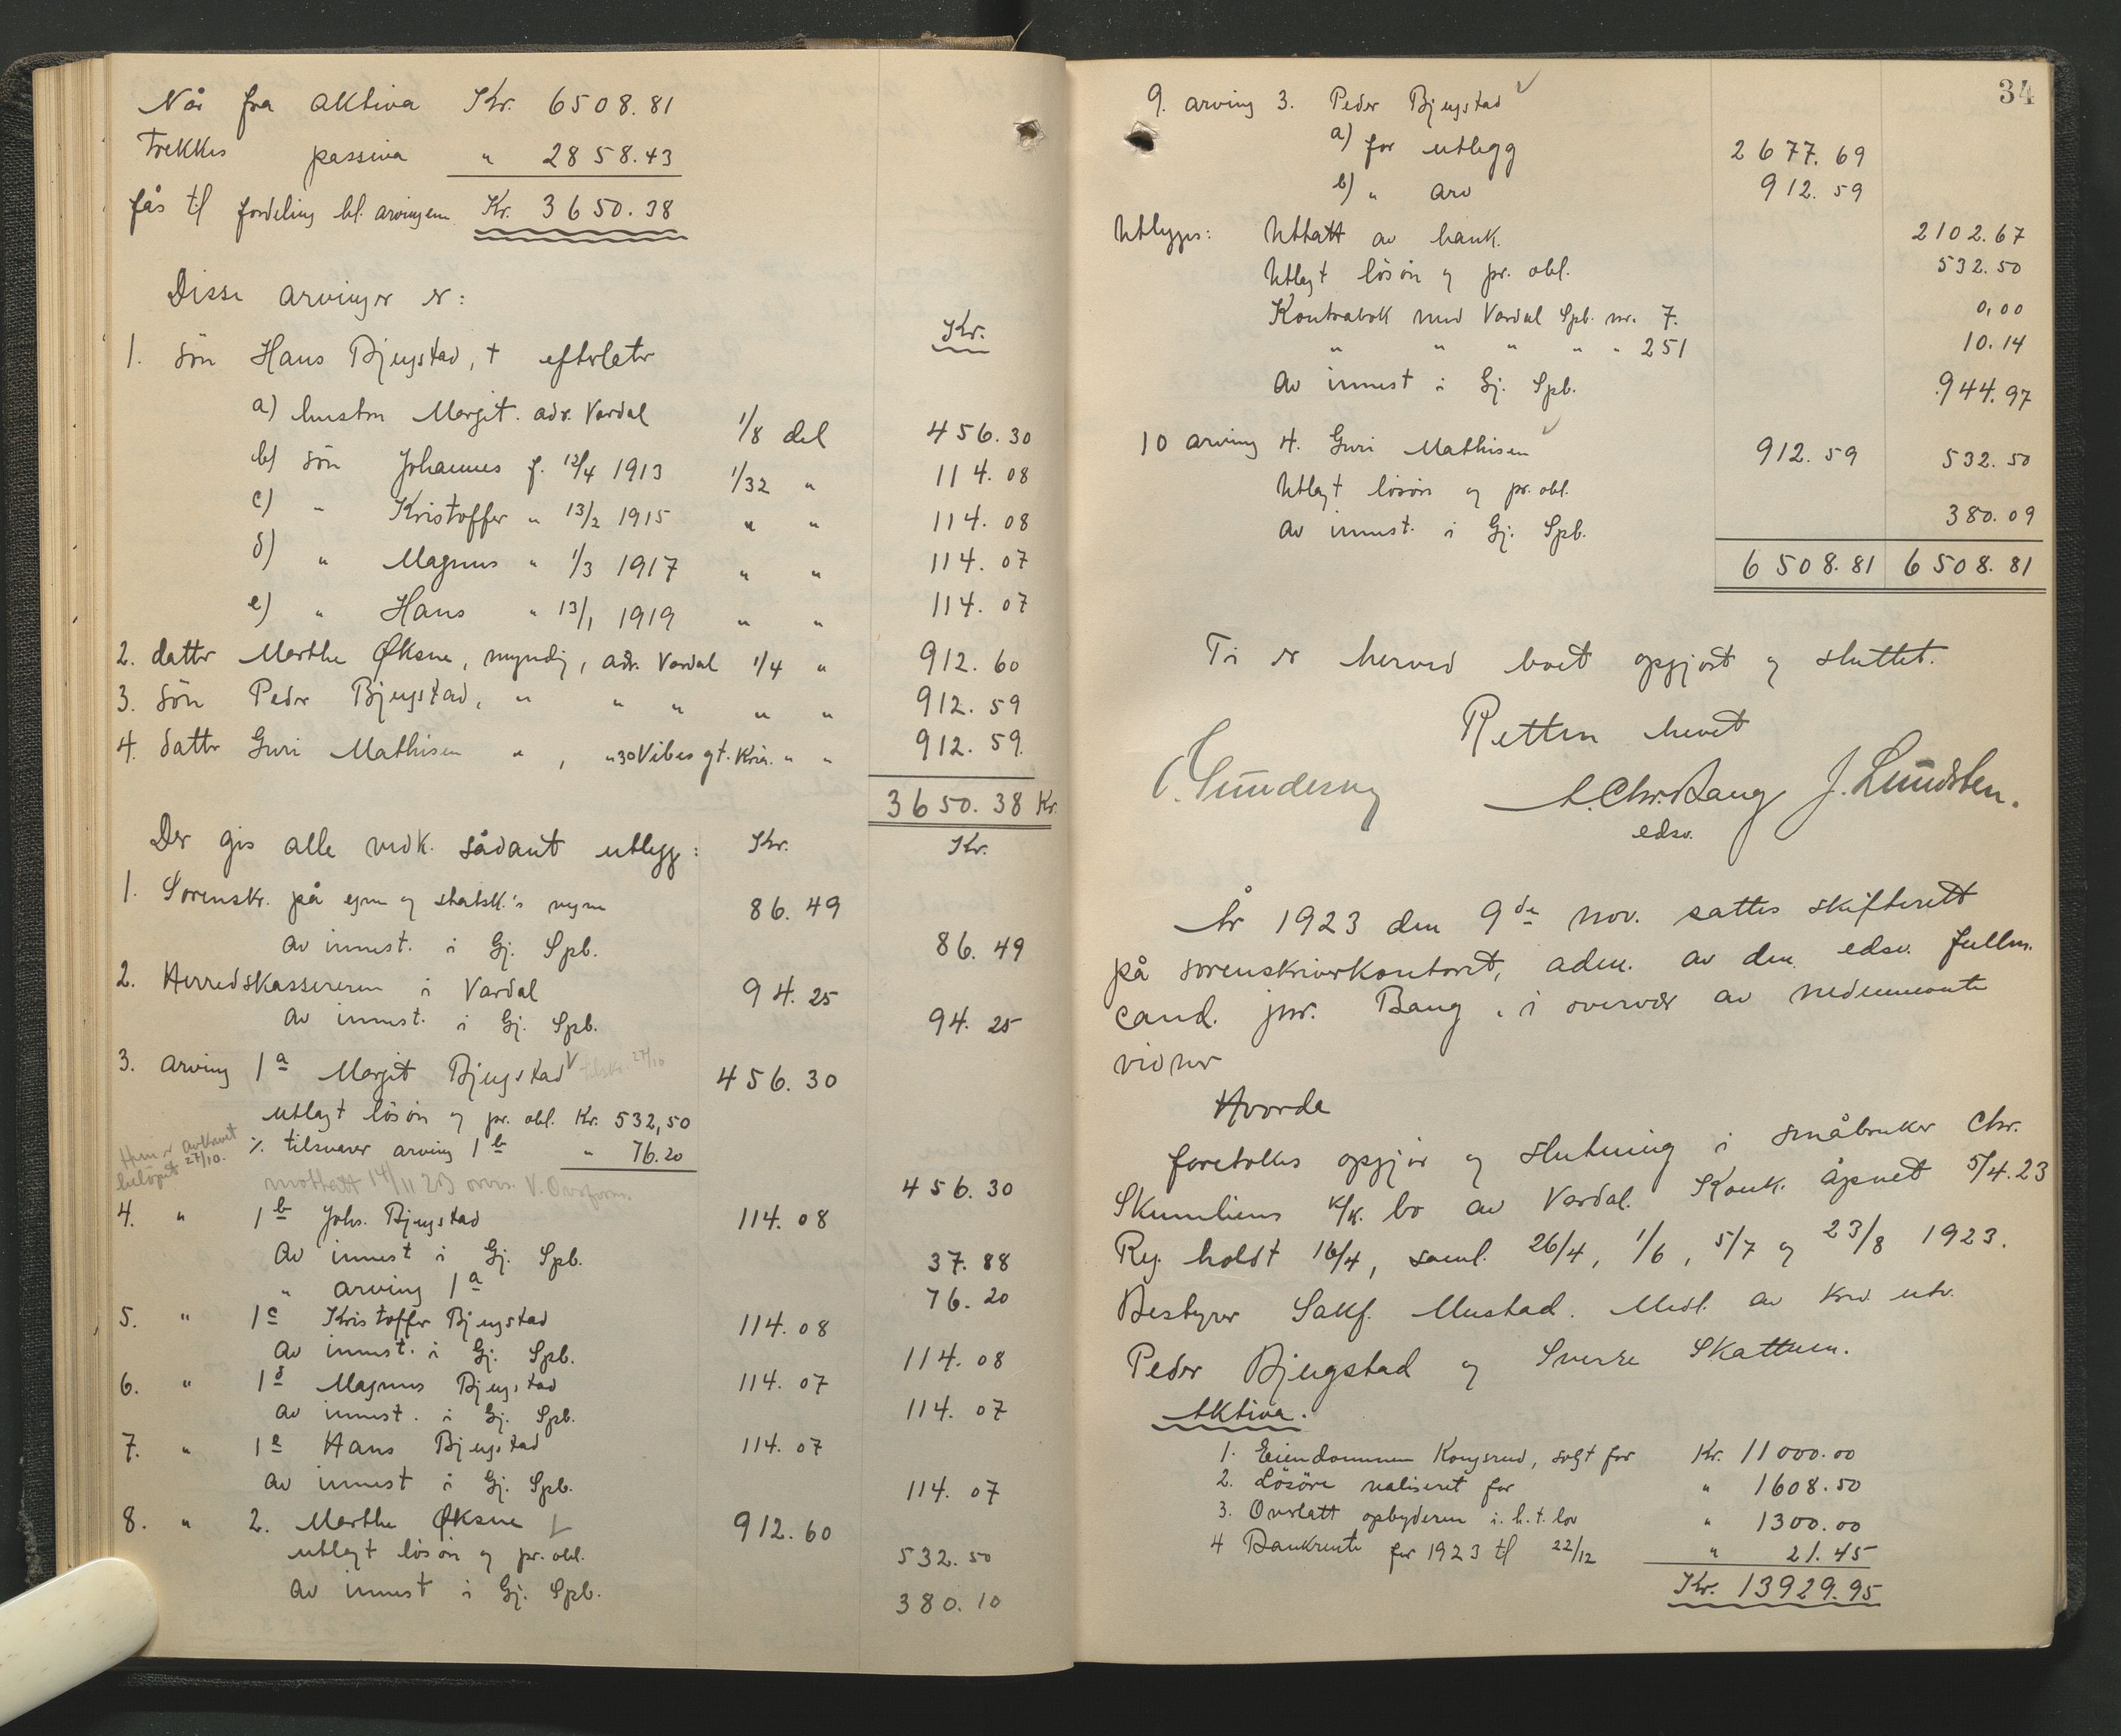 Når fra aktiva Kr. 6508.81
trekkes passiva " 2858.43
fås til fordeling bl. arvingene Kr. 3650.38
Disse arvinger er:
Kr.
1. sön Hans Bjugstad, † efterlater
a) hustru Margit. adr. Vardal 1/8 del 456.30
b) sön Johannes f. 12/4 1913 1/32 " 114.08
c) " Kristoffer " 13/2 1915 " " 114.08
d) " Magnus " 1/3 1917 " " 114.07
e) " Hans " 13/1 1919 " " 114.07
2. datter Marthe Øksne, myndig, adr. Vardal 1/4 " 912.60
3. sön Peder Bjugstad, " " " " " 912.59
4. datter Guri Mathisen " , " 30 Vibes gt. Kria. " " 912.59
3650.38 Kr.
Der gis alle vedk. sådant utlegg: Kr. Kr.
1. Sorenskr. på egne og statsk.'s vegne 86.49
av innest. i Gj. Spb. 86.49
2. Herredskassereren i Vardal 94.25
av innest. i Gj. Spb. 94.25
3. arving 1a Margit Bjugstad tilskr. 27/10 456.30
utlagt lösöre og pr. obl. Kr. 532,50
Hun er avkrevet
belöpet 27/10.
% tilsvarer arving 1b " 76.20
mottatt 14/11 23 V. Overform. 456.30
4. " 1b Johs. Bjugstad 114.08
Av innest i Gj. Spb. 37.88
" arving 1a 76.20
5. " 1c Kristoffer Bjugstad 114.08
Av innest. i Gj. Spb. 114.08
6. " 1d Magnus Bjugstad 114.07
av innest. i Gj. Spb. 114.07
7. " 1e Hans Bjugstad 114.07
av innest i Gj. Spb. 114.07
8. " 2. Marthe Øksne 912.60
utlagt lösöre og pr. obl. 532.50
av innest i Gj. Spb. 380.10
34
9. arving 3. Peder Bjugstad
a) for utlegg 2677.69
b) " arv 912.59
Utlegges: Uttatt av bank. 2102.67
Utlagt lösöre og pr. obl. 532.50
Kontrabok med Vardal Spb. nr. 7. 0,00
" " " " " 251 10.14
av innest i Gj. Spb. 944.97
10 arving 4. Guri Mathisen 912.59 532.50
Utlagt lösöre og pr. obl.
av innest. i Gj. Spb. 380.09
6508.81 6508.81
Ti er herved boet opgjort og sluttet.
Retten hevet
A. Chr. Bang J. Lundsten.
edsv.
År 1923 den 9de nov. sattes skifterett
på sorenskriverkontoret, adm. av den edsv. fullm.
cand. jur. Bang, i overvær av nedennevnte
vidner
Hvorda
foretokes opgjör og slutning i småbruker Chr.
Skumliens k/k. bo av Vardal. Konk. åpnet 5/4.23
Reg. holdt 16/4, saml. 26/4, 1/6, 5/7 og 23/8 1923.
Bestyrer Sakf. Mustad. Medl. av kred. utv.
Peder Bjugstad og Sverre Skattum.
Aktiva.
1. Eiendommen Kongsrud, solgt for Kr. 11000.00
2. Lösöre realiseret for " 1608.50
3. Overlatt opbyderen i. h. t. lov " 1300.00
4 Bankrente for 1923 til 22/12 " 21.45
Kr. 13929.95